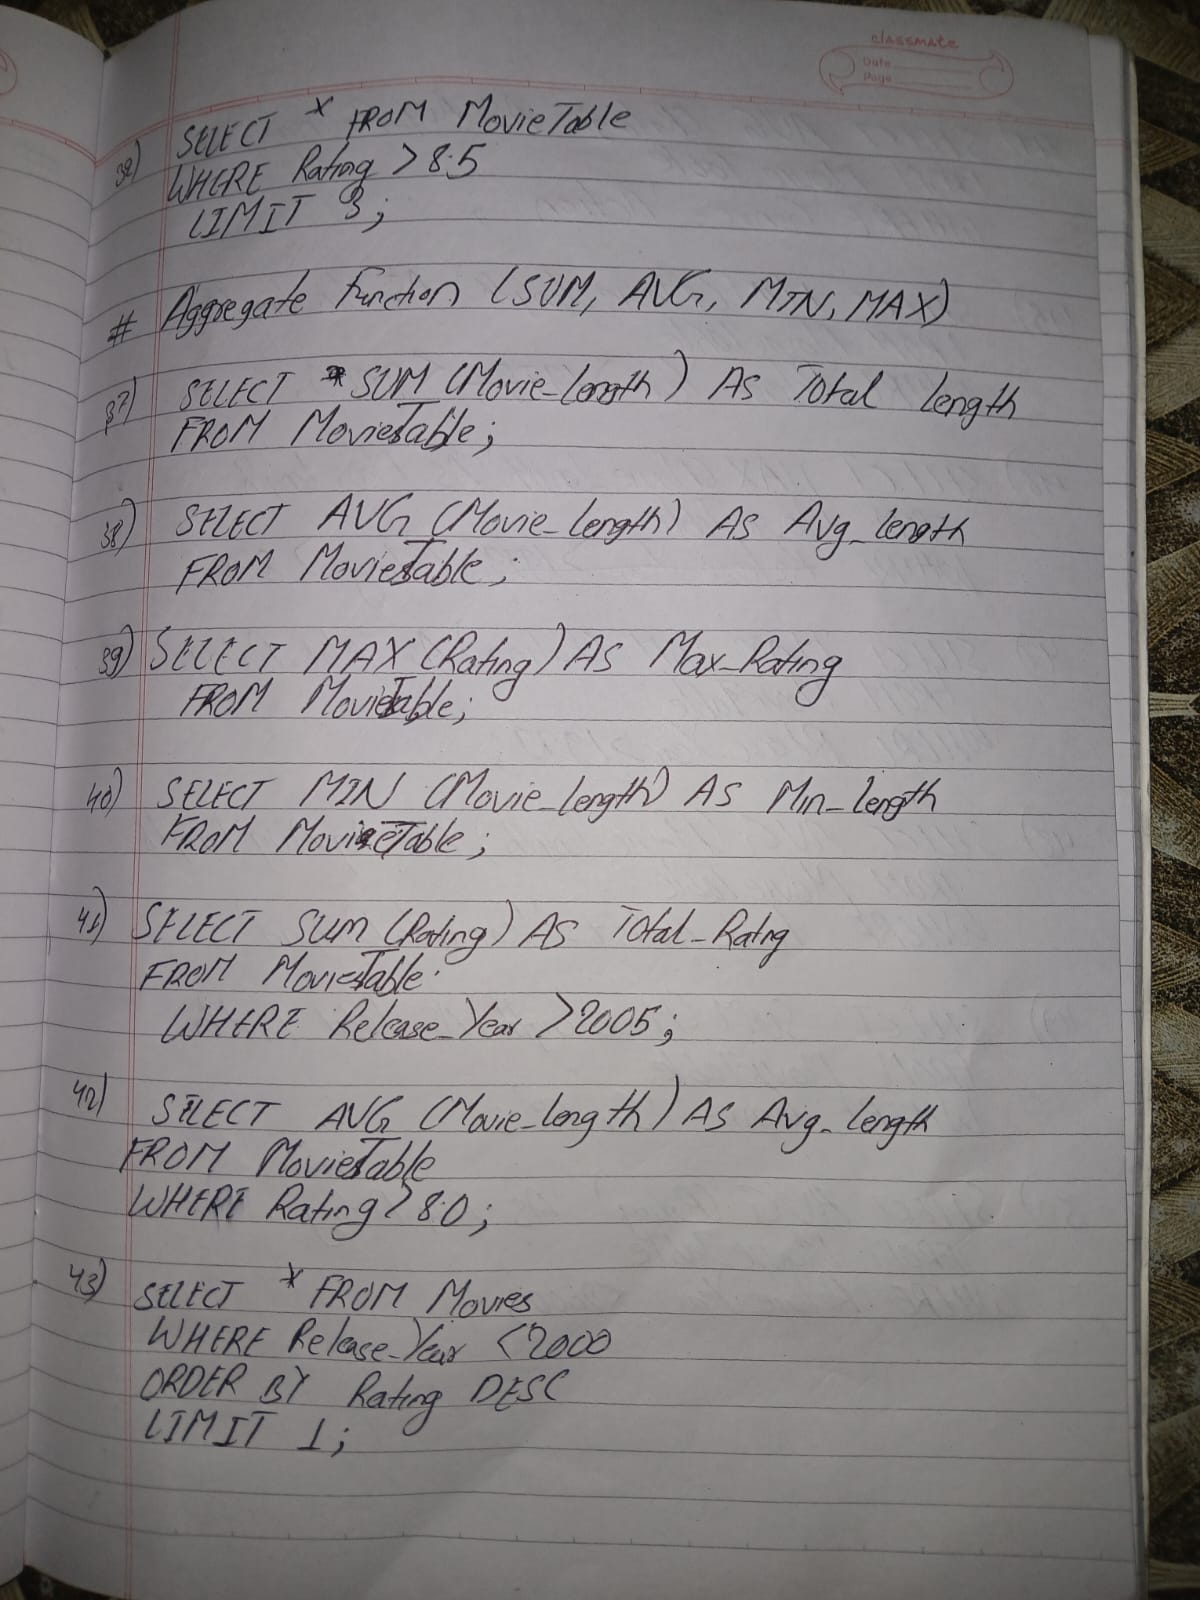 classmate
Date
Page
SELECT * FROM MovieTable
WHERE Rating > 8.5
LIMIT 3;
# Aggregate Function (SUM, AVG, MIN, MAX)
37) SELECT SUM (Movie_length) AS Total length
FROM MovieTable;
38) SELECT AVG (Movie_length) AS Avg_length
FROM MovieTable;
39) SELECT MAX (Rating) AS Max_Rating
FROM MovieTable;
40) SELECT MIN (Movie_length) AS Min_length
FROM MovieTable;
41) SELECT SUM (Rating) AS Total_Ratng
FROM MovieTable
WHERE Release_Year >2005;
42) SELECT AVG (Movie_length) AS Avg_length
FROM MovieTable
WHERE Rating > 8.0;
43) SELECT * FROM Movies
WHERE Release_Year <2000
ORDER BY Rating DESC
LIMIT 1;